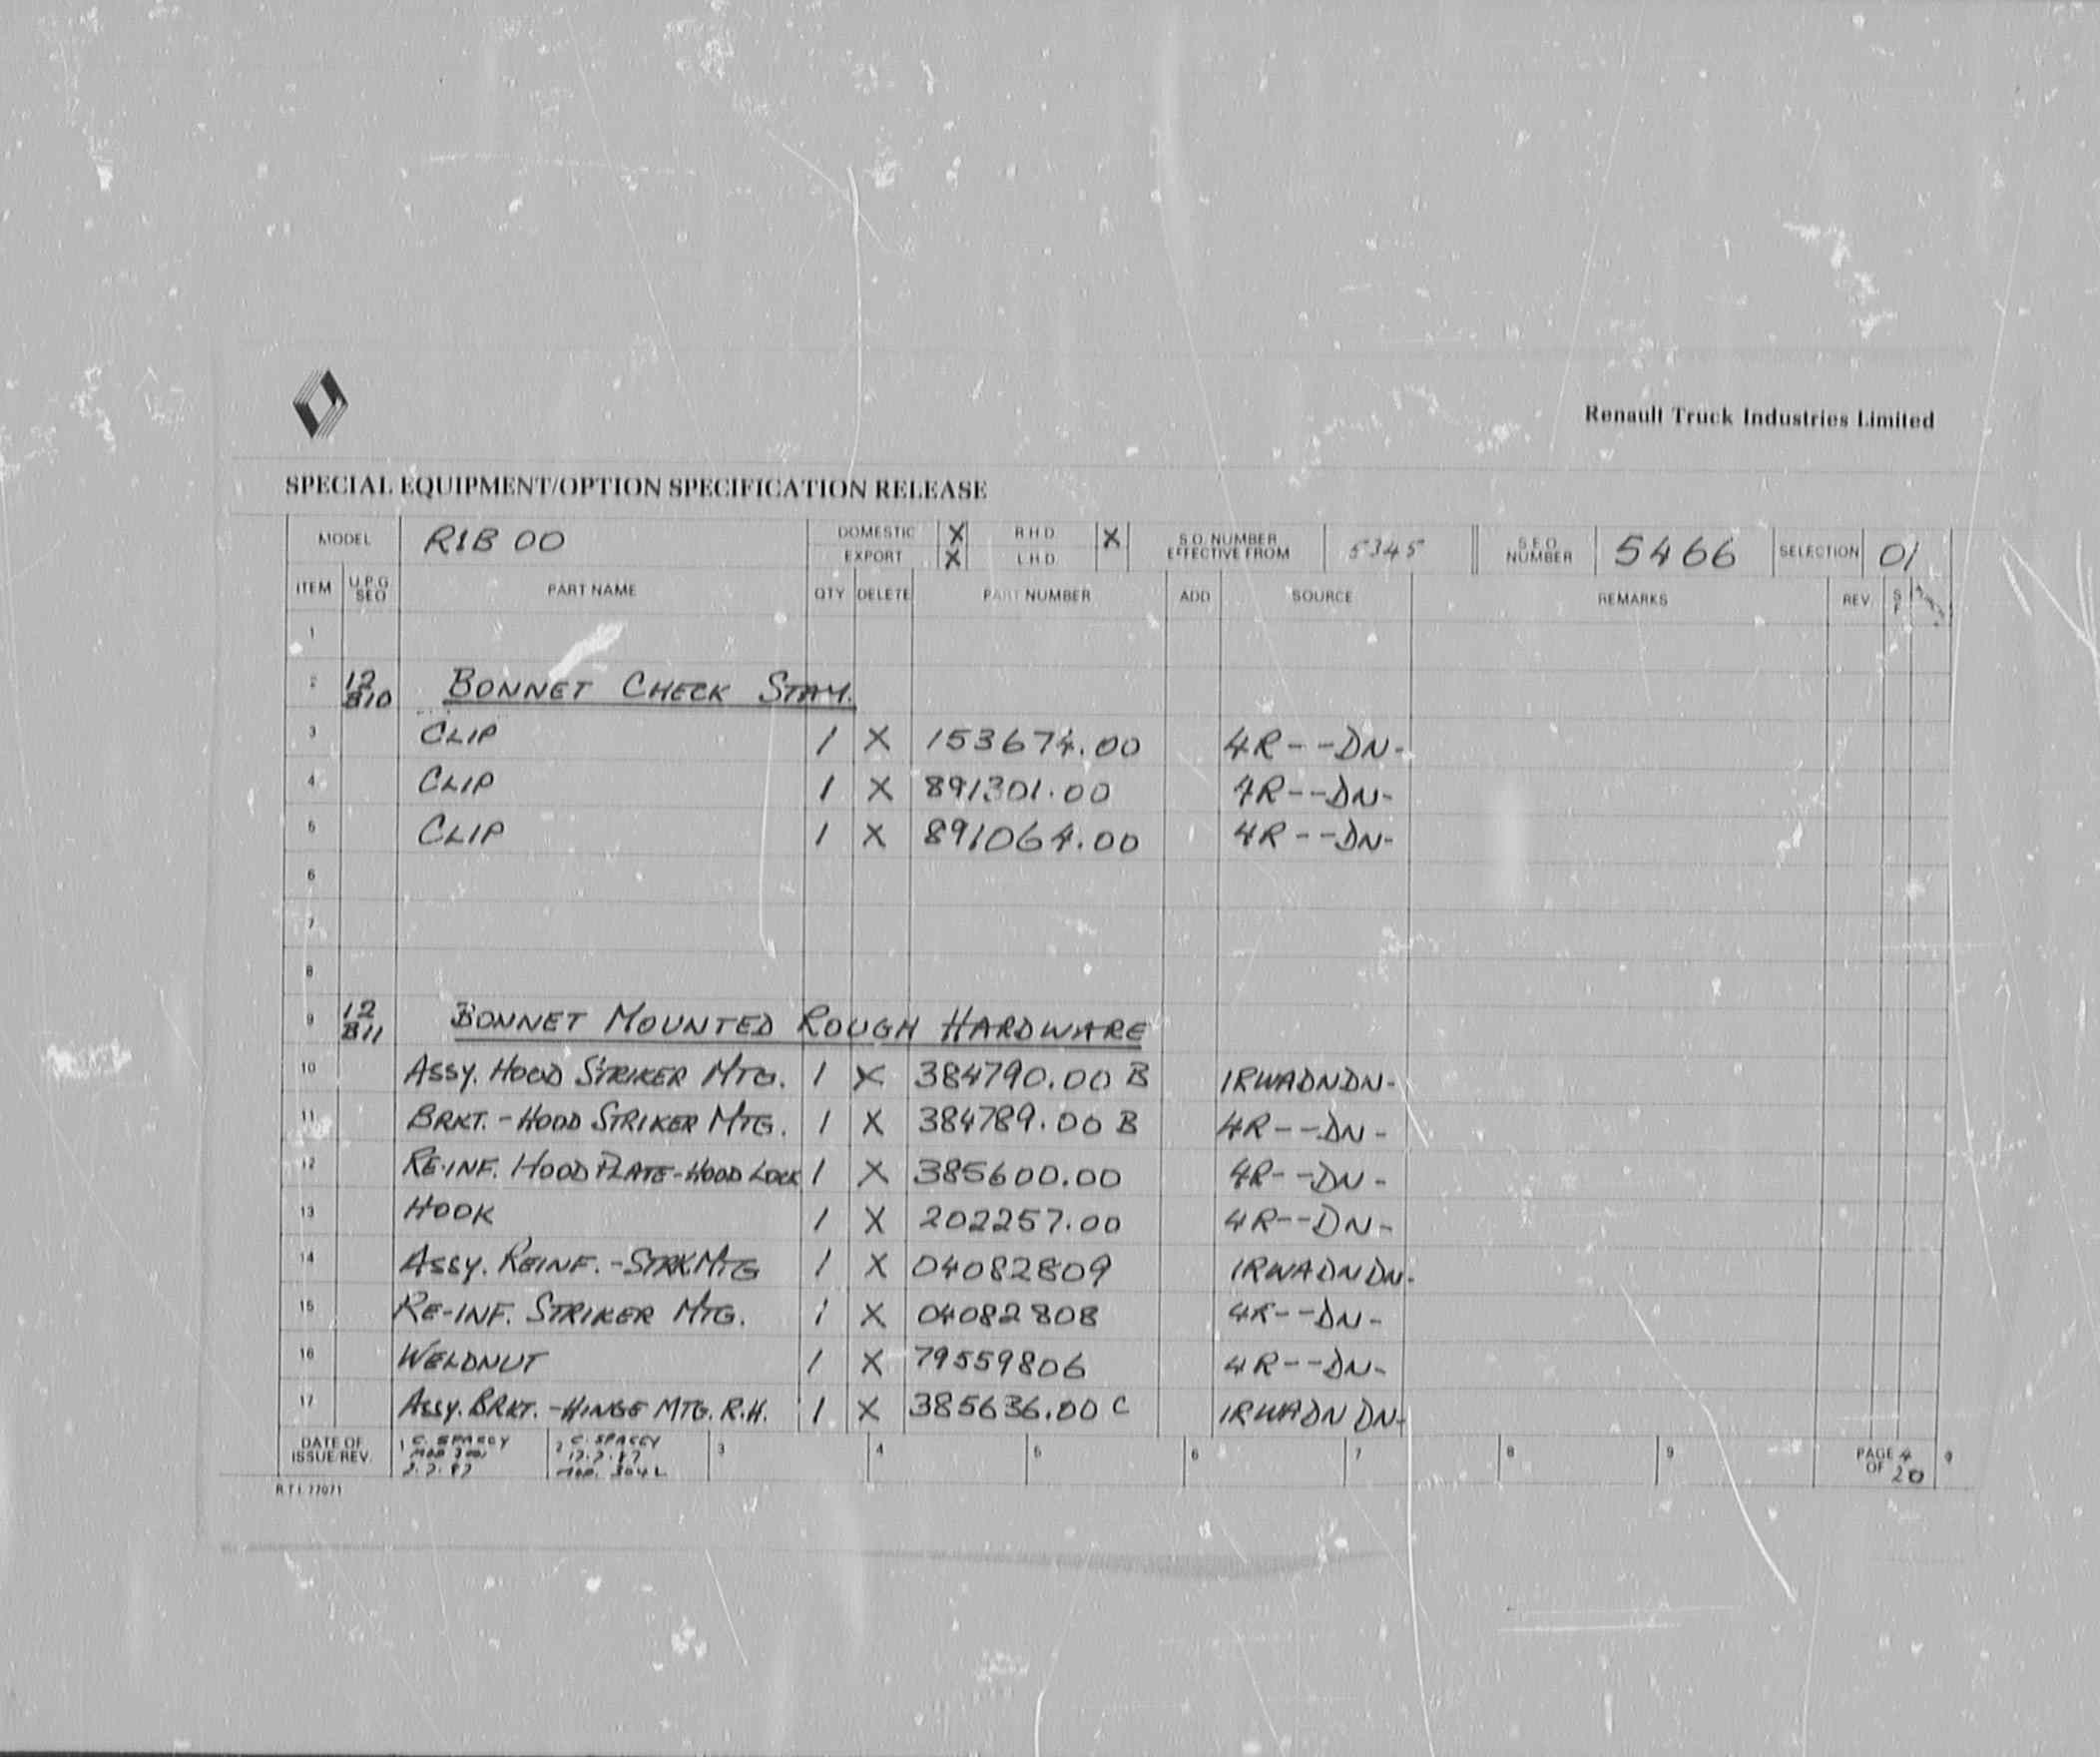 Renault Truck Industries Limited
SPECIAL EQUIPMENT/OPTION SPECIFICATION RELEASE
MODEL R1B 00 DOMESTIC X R.H.D. X S.O. NUMBER EFFECTIVE FROM 5345 S.E.O. NUMBER 5466 SELECTION 01
EXPORT X L.H.D.
ITEM U.P.G. SEQ PART NAME QTY DELETE PART NUMBER ADD SOURCE REMARKS REV. S F
1
2 12 B10 BONNET CHECK STAY.
3 CLIP 1 X 153674.00 4R--DN-
4 CLIP 1 X 891301.00 4R--DN-
5 CLIP 1 X 891064.00 4R--DN-
6
7
8
9 12 B11 BONNET MOUNTED ROUGH HARDWARE
10 ASSY. HOOD STRIKER MTG. 1 X 384790.00 B 1RWADNDN-
11 BRKT. - HOOD STRIKER MTG. 1 X 384789.00 B 4R--DN-
12 RE-INF. HOOD PLATE - HOOD LOCK 1 X 385600.00 4R--DN-
13 HOOK 1 X 202257.00 4R--DN-
14 ASSY. REINF. - STRK MTG 1 X 04082809 1RWADNDN-
15 RE-INF. STRIKER MTG. 1 X 04082808 4R--DN-
16 WELDNUT 1 X 79559806 4R--DN-
17 ASSY. BRKT. - HINGE MTG. R.H. 1 X 385636.00 C 1RWADNDN-
DATE OF ISSUE/REV. 1 C. SPACEY 2 C. SPACEY 3 4 5 6 7 8 9 PAGE 4 OF 20
R.T.I. 77071